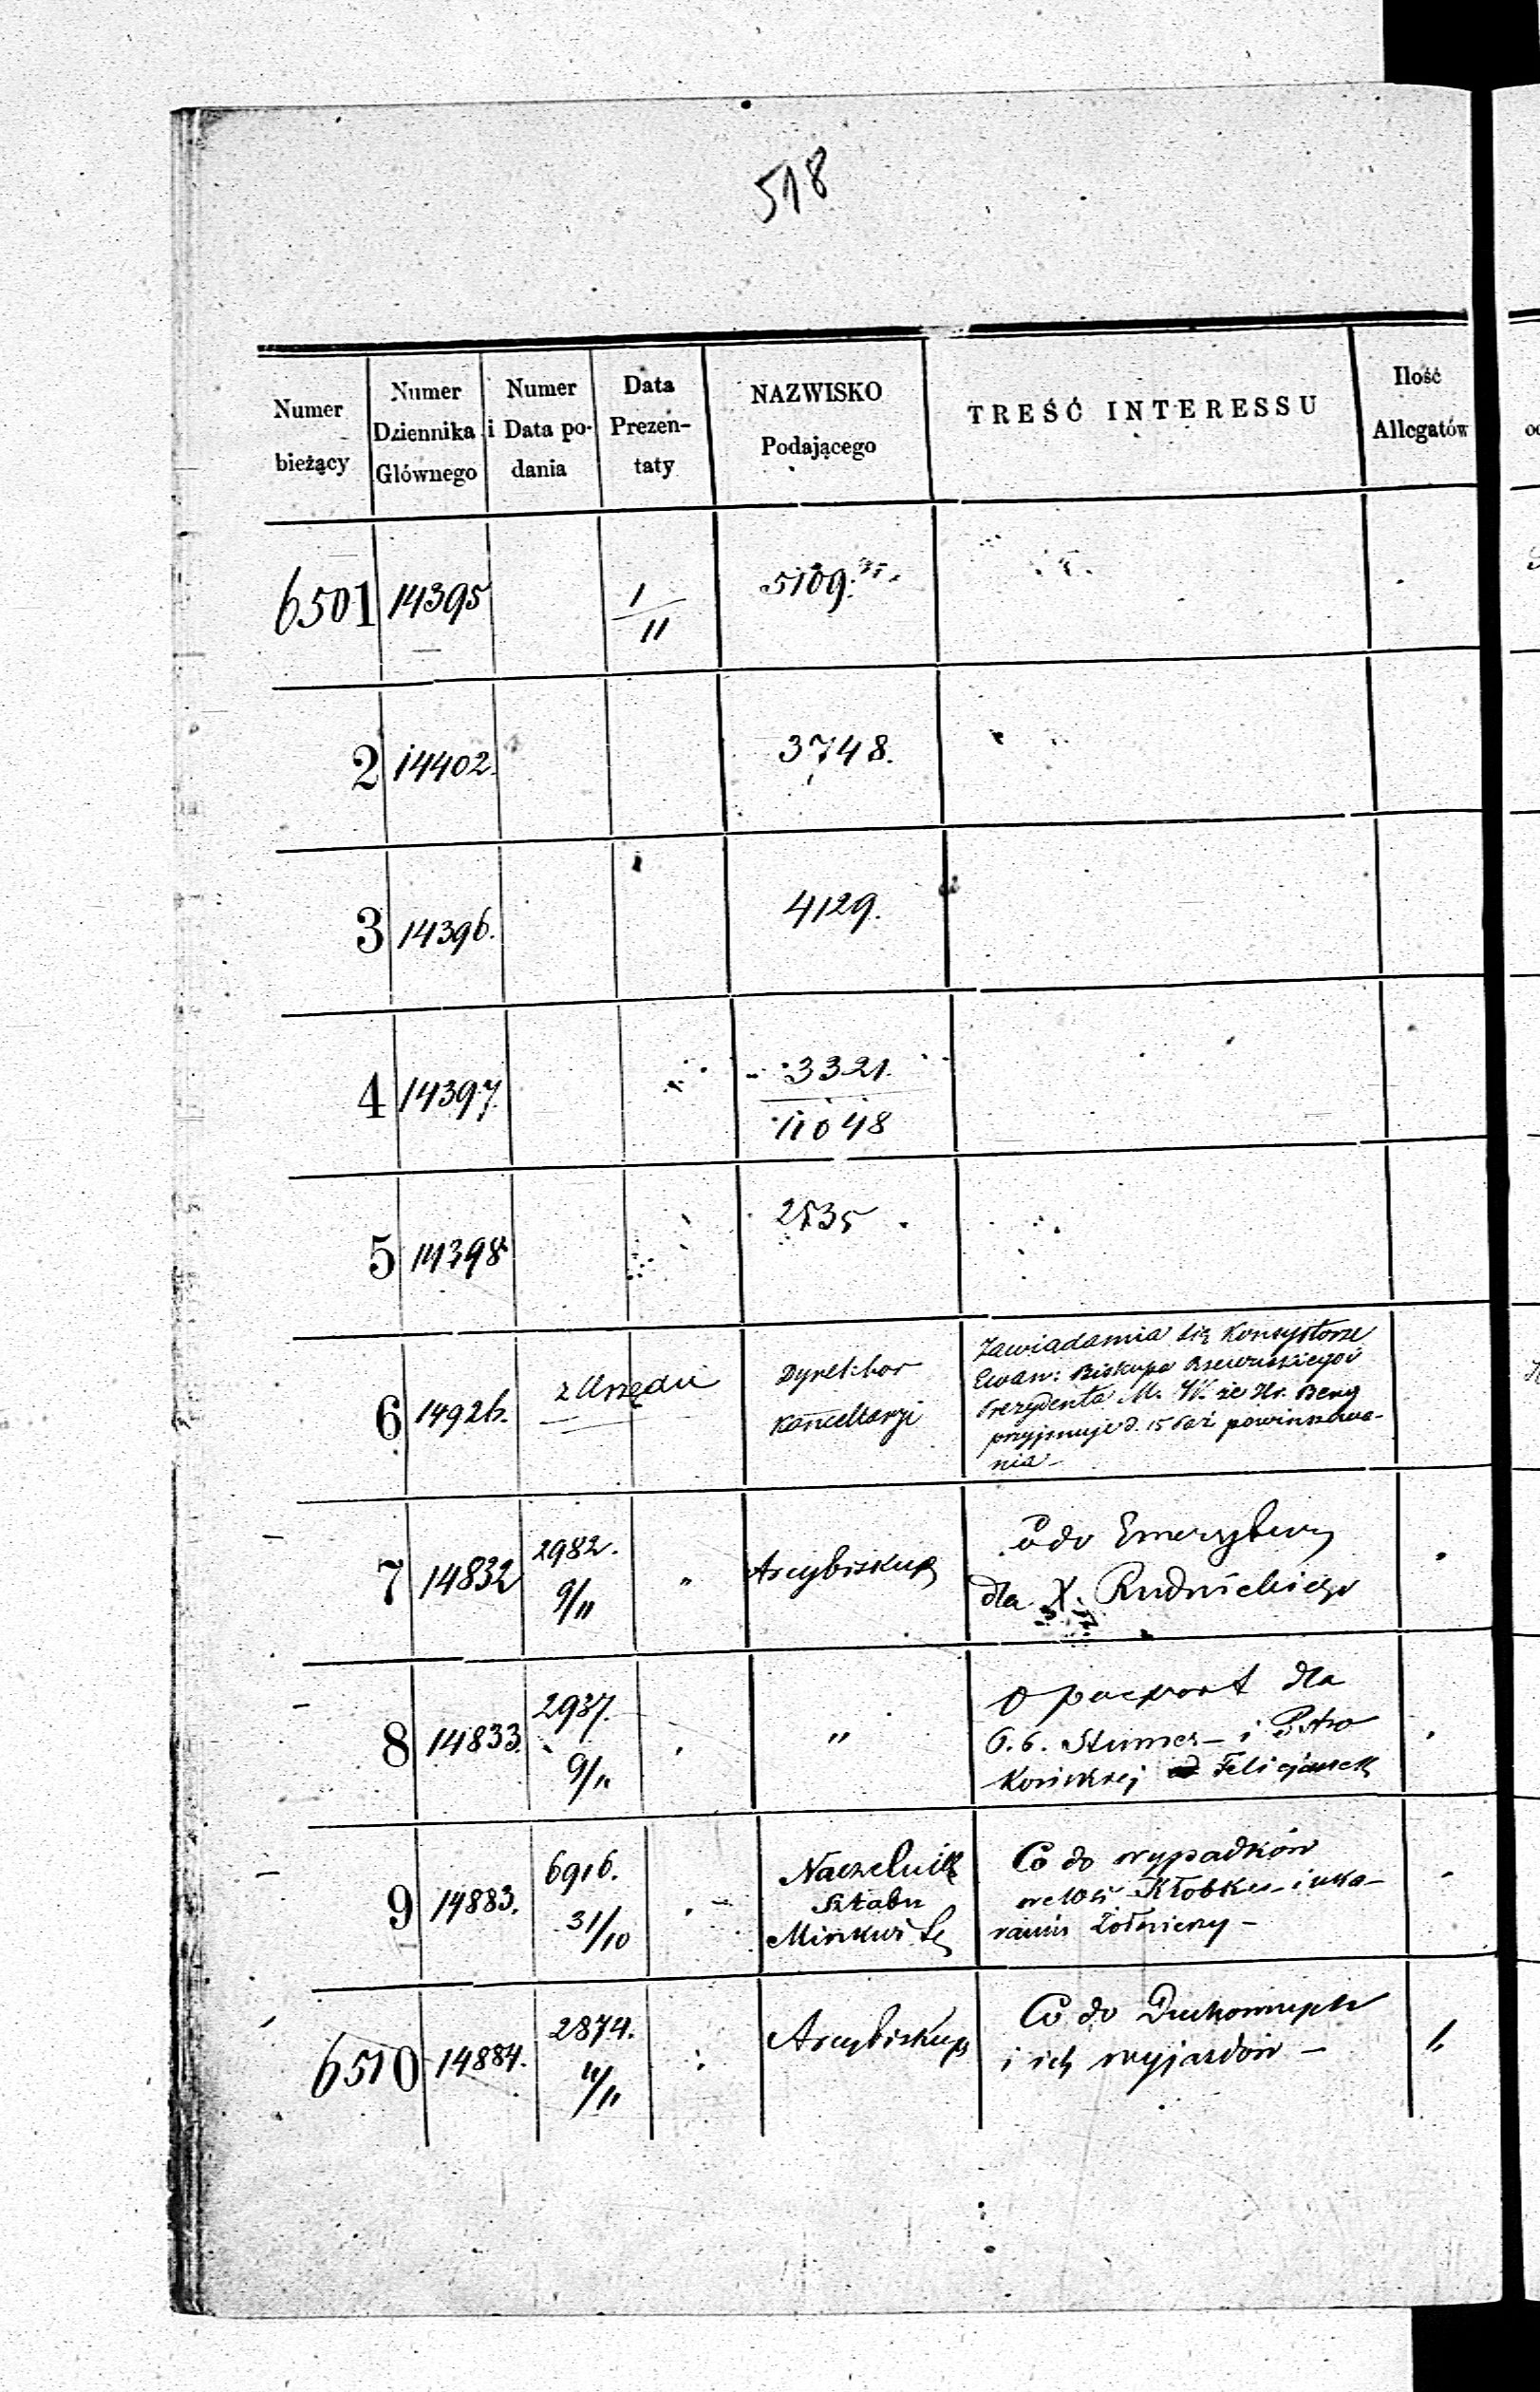 518
Numer bieżący
Numer Dziennika Głównego
Numer i Data podania
Data Prezentaty
NAZWISKO Podającego
TREŚĆ INTERESSU
Ilość Allegatów
6501 14395 1/11 5109.
2 14402. 3748.
3 14396. 4129.
4 14397. 3321. 11048
5 14398 2535
6 14926. z Urzędu Dyrektor Kancellaryi
Zawiadamia się Konsystorze
Ewan: Biskupa
Prezydenta M. W. że Hr. Berg
przyjmuje d. 15 powinszowa-
nia -
7 14832 2982. 9/11 " Arcybiskup
Co do Emerytury
dla X. Rudnickiego
8 14833. 2937. 9/11 "
O paszport dla
i
Felicjanek
9 14883. 6916. 31/10 Naczelnik Sztabu Minkwitz
Co do wypadków
we wsi Kłobka i uka-
rania żołnierzy -
6510 14884. 2874. 11/11 Arcybiskup
Co do Duchownych
i ich wyjazdów - 1.